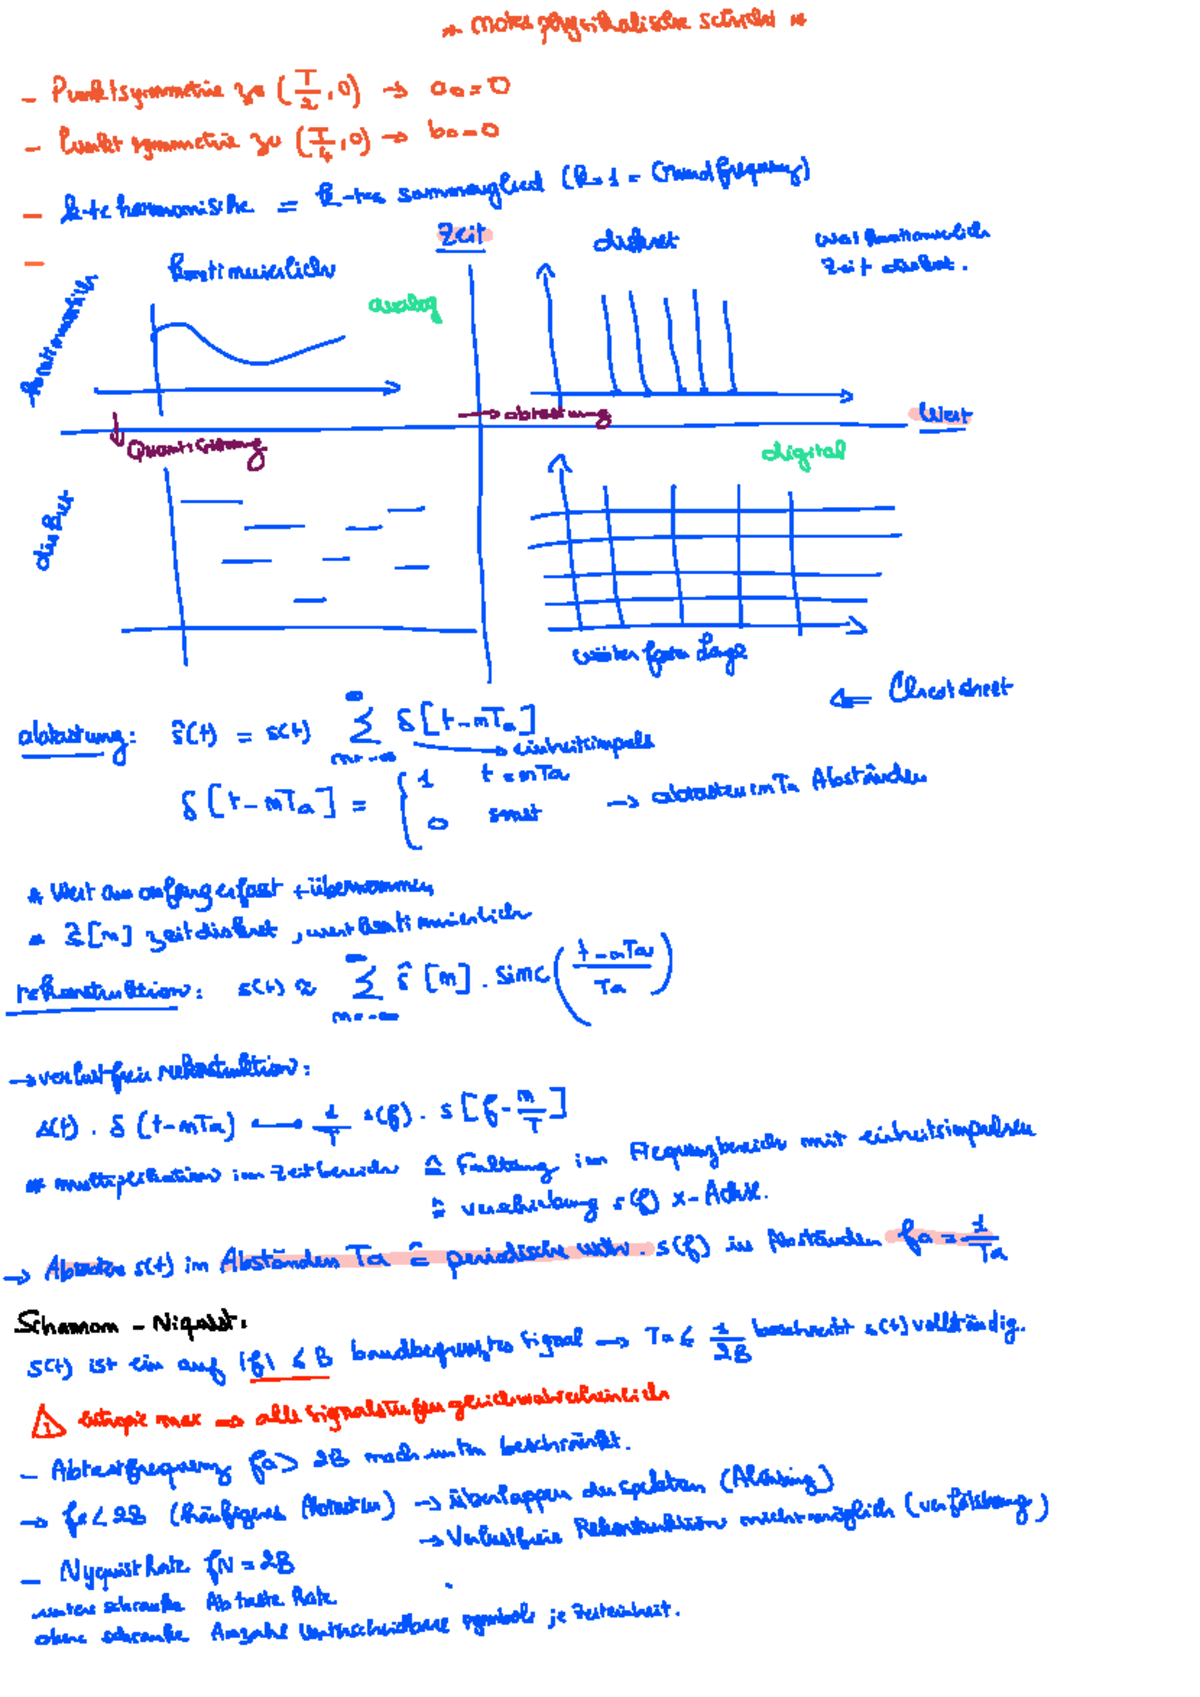 * Notes physikalische schicht *
- Punktsymmetrie zu (T/2, 0) → a₀ = 0
- Punkt symmetrie zu (T/4, 0) → b₀ = 0
- k-te harmonische = k-tes summenglied (k=1 = Grundfrequenz)
-
Zeit
kontinuierlich
diskret
wert kontinuierlich
Zeit diskret.
kontinuierlich
analog
→ abtastung
Wert
↓ Quantisierung
digital
diskret
← Cheatsheet
abtastung: ŝ(t) = s(t) ∑_{n=-∞}^{∞} δ[t-nTa]
→ einheitsimpuls
δ[t-nTa] = { 1 t = nTa
0 sonst → abtasten in Ta Abständen
* Wert am anfang erfasst + übernommen
* ŝ[n] zeitdiskret, wertkontinuierlich
rekonstruktion: s(t) ≈ ∑_{n=-∞}^{∞} ŝ[n] . sinc((t-nTa)/Ta)
→ verlustfreie rekonstruktion:
s(t) . δ[t-nTa] ⟷ 1/T s(f) . s[f - n/T]
* multiplikation im zeitbereich ≙ Faltung im Frequenzbereich mit einheitsimpulsen
≙ verschiebung s(f) x-Achse.
→ Abtasten s(t) im Abständen Ta ≙ periodische wdh. s(f) in Abständen fa = 1/Ta
Schannon - Niquist:
s(t) ist ein auf |f| ≤ B bandbegrenztes Signal → Ta ≤ 1/2B beschreibt s(t) vollständig.
⚠ Entropie max → alle signalstufen gleichwahrscheinlich
- Abtastfrequenz fa > 2B nach unten beschränkt.
→ fa < 2B (häufigeres Abtasten) → überlappen der spektren (Aliasing)
→ Verlustfreie Rekonstruktion nicht möglich (verfälschung)
- Nyquist Rate fN = 2B
untere schranke Abtaste Rate
obere schranke Anzahl unterscheidbare symbole je Zeiteinheit.